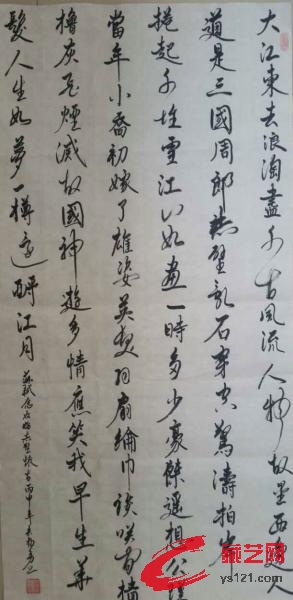 大江東去浪淘盡千古風流人物故壘西邊人
道是三國周郎赤壁亂石穿空驚濤拍岸
捲起千堆雪江山如畫一時多少豪傑遙想公瑾
當年小喬初嫁了雄姿英發羽扇綸巾談笑間檣
櫓灰飛煙滅故國神遊多情應笑我早生華
髮人生如夢一樽還酹江月
蘇軾念奴嬌赤壁懷古丙申年
藏艺网
ys121.com